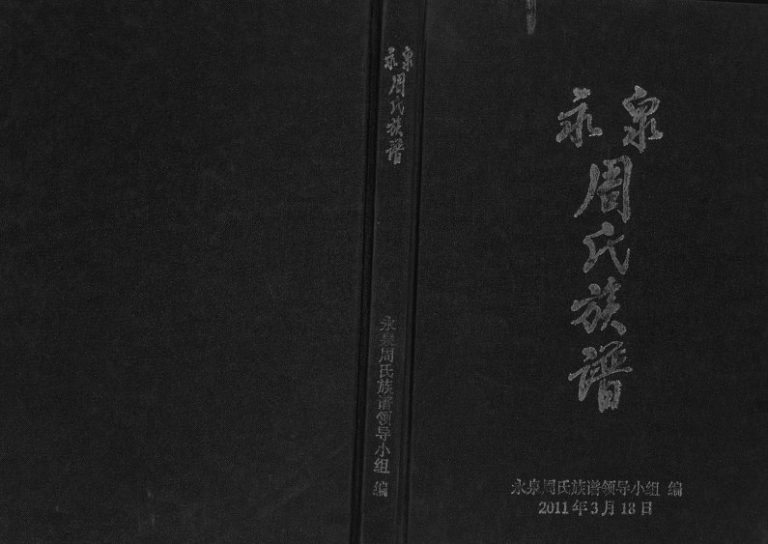 永泉
周氏族谱
永泉周氏族谱领导小组 编
永泉
周氏族谱
永泉周氏族谱领导小组 编
2011年3月18日